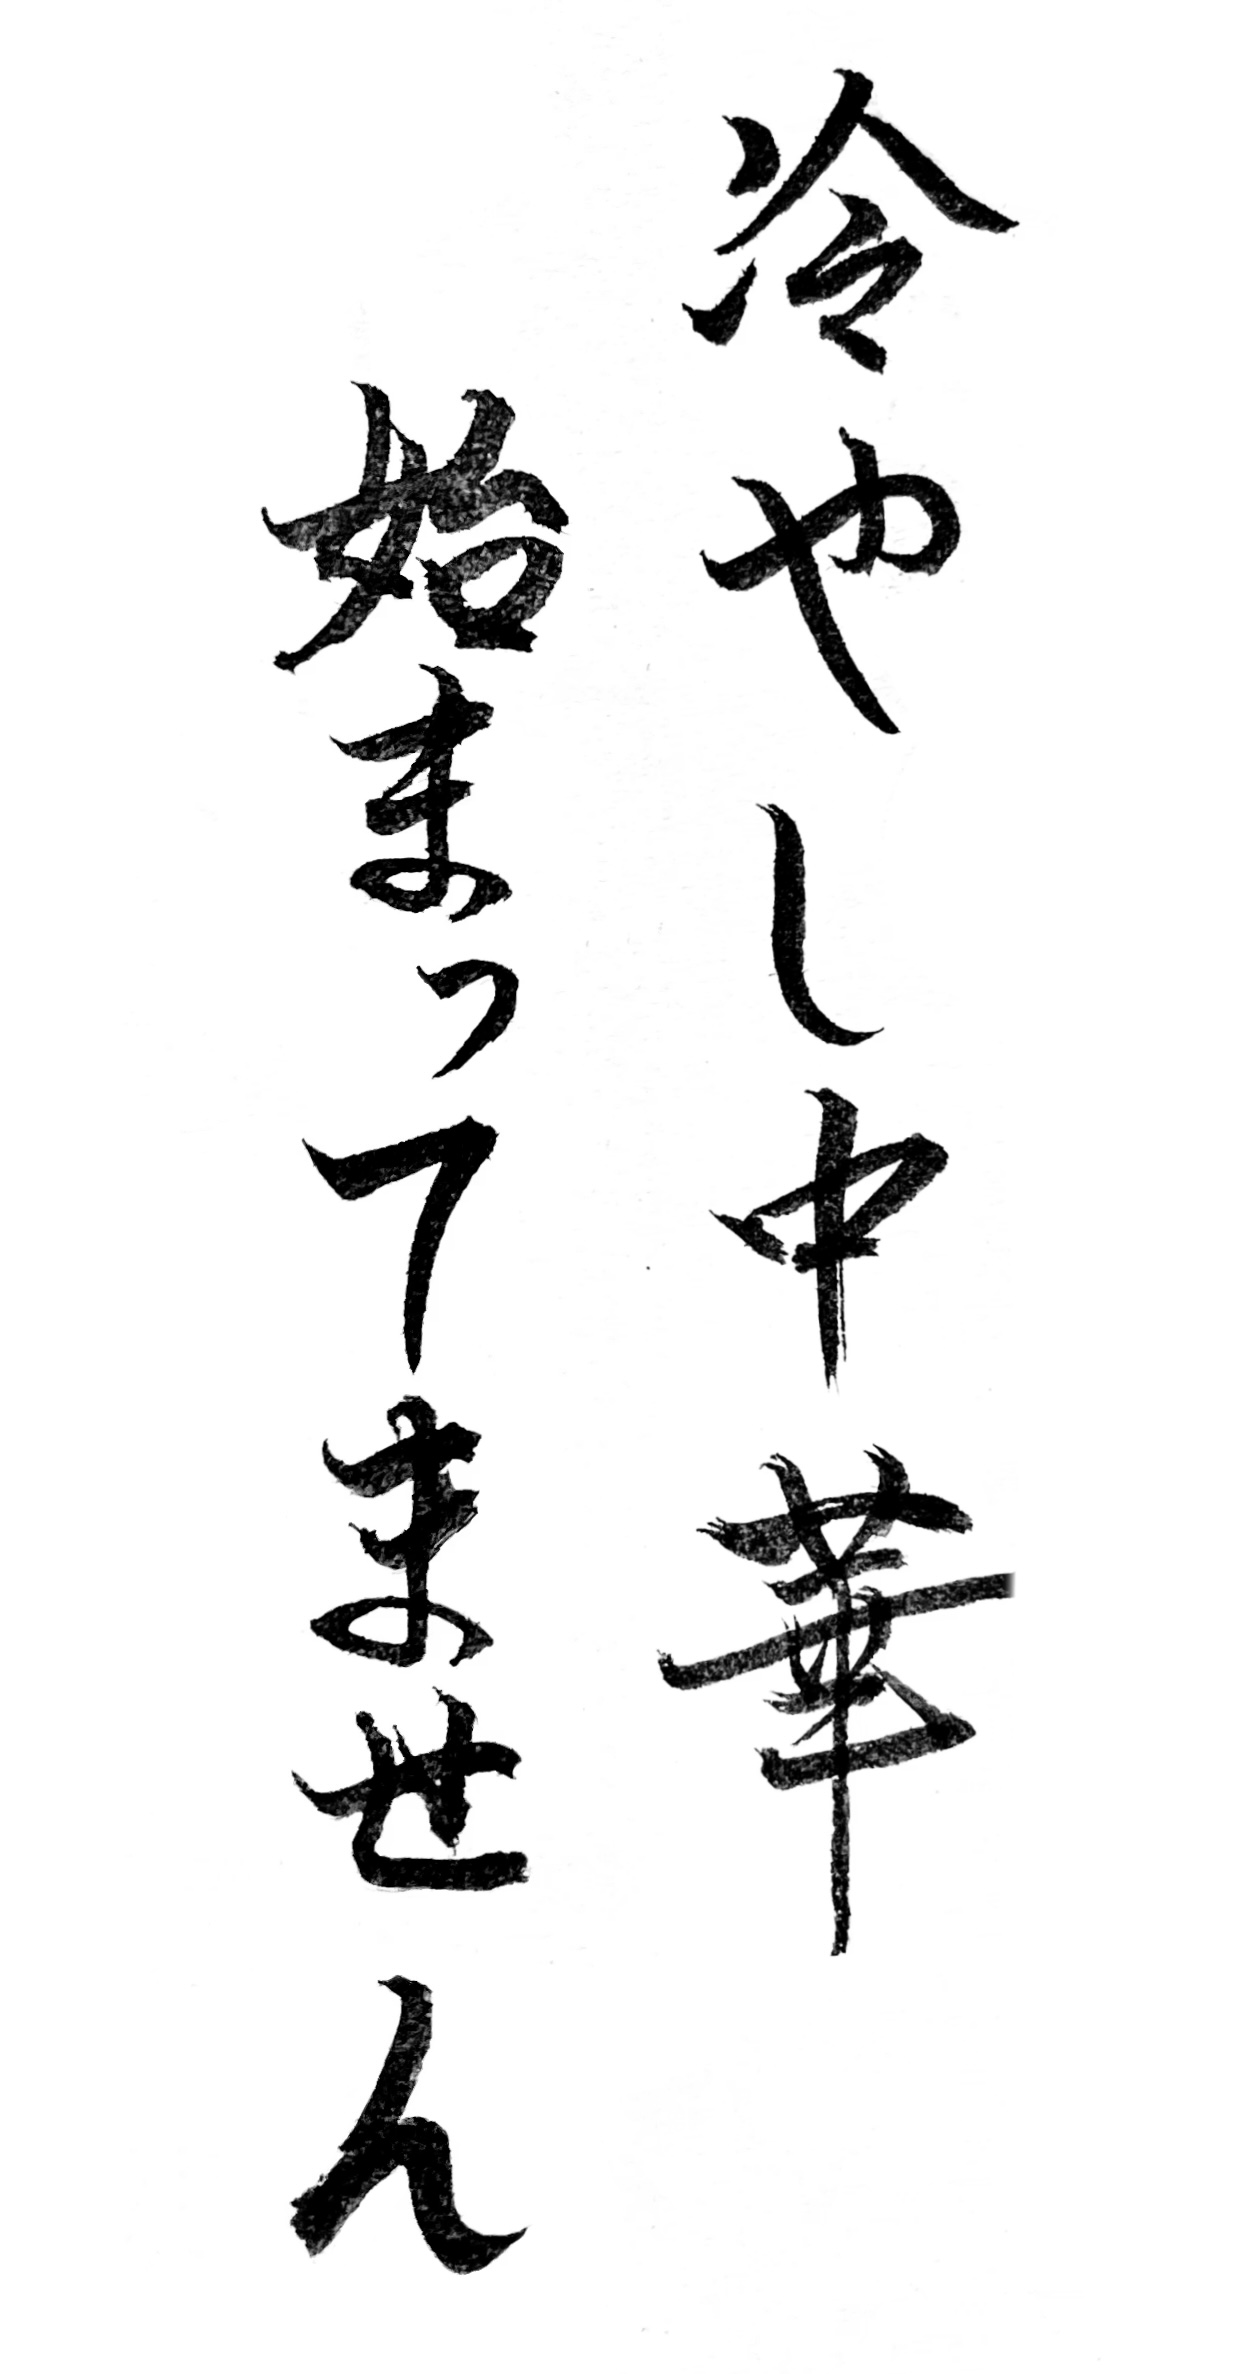 冷やし中華
始まってません